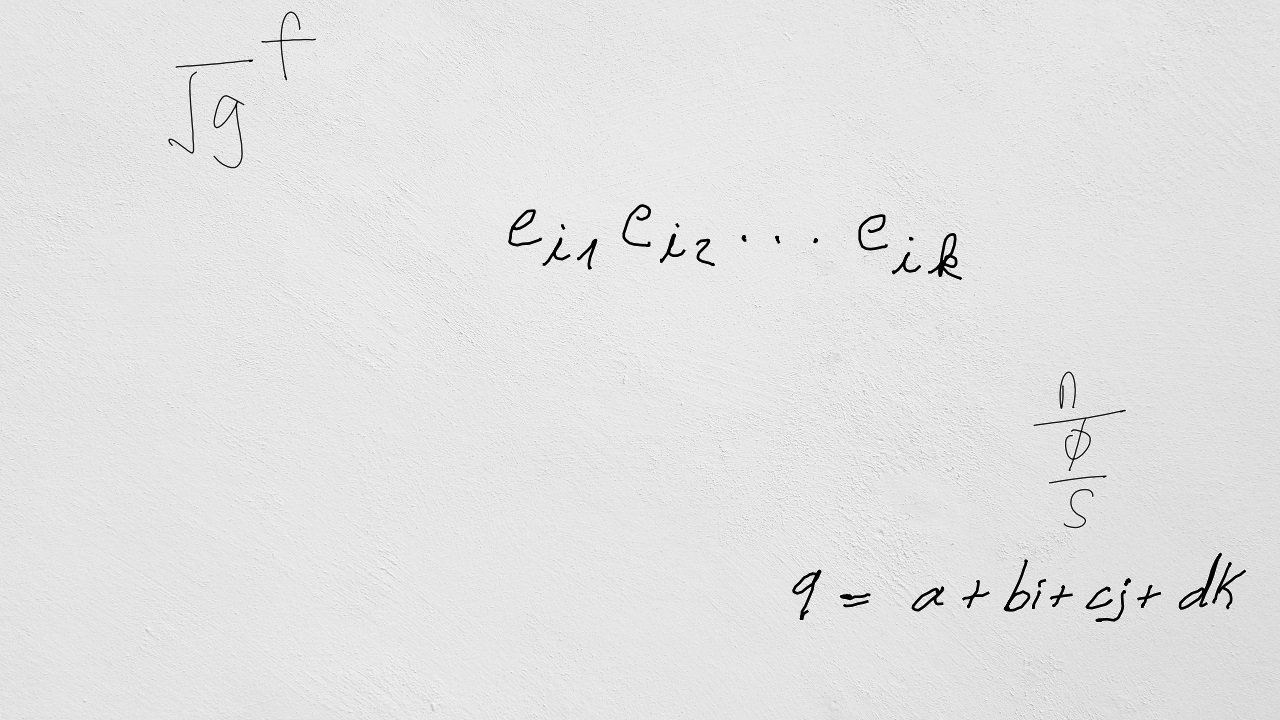 $\sqrt{g}^{f}$
$e_{i1} e_{i2} \cdots e_{ik}$
$\frac{n}{\frac{\phi}{s}}$
$q = a + bi + cj + dk$